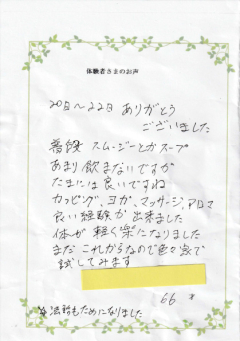 体験者さまのお声
20日～22日 ありがとう
ございました
普段 スムージーとかスープ
あまり飲まないですが
たまには良いですね
カッピング、ヨガ、マッサージ、アロマ
良い経験が出来ました
体が軽く楽になりました
まだこれからなので色々家で
試してみます
66才
☆法話もためになりました